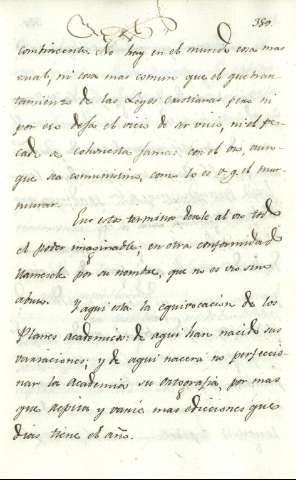 380.
continente. No hay en el mundo cosa mas
usual, ni cosa mas comun que el quebran-
tamiento de las Leyes cristianas pero ni
por eso deja el vicio de ser vicio, ni el pe-
cado se cohonesta jamas con el uso, aun-
que sea comunisimo, como lo es v.g. el mur-
murar.
En estos terminos desele al uso todo
el poder imaginable; en otra conformidad
llamesele por su nombre, que no es uso sino
abuso.
Y aqui esta la equivocacion de los
Planes academicos; de aqui han nacido sus
variaciones; y de aqui nacerá no perfeccio-
nar la Academia su ortografia, por mas
que repita y varie mas ediciones que
dias tiene el año.